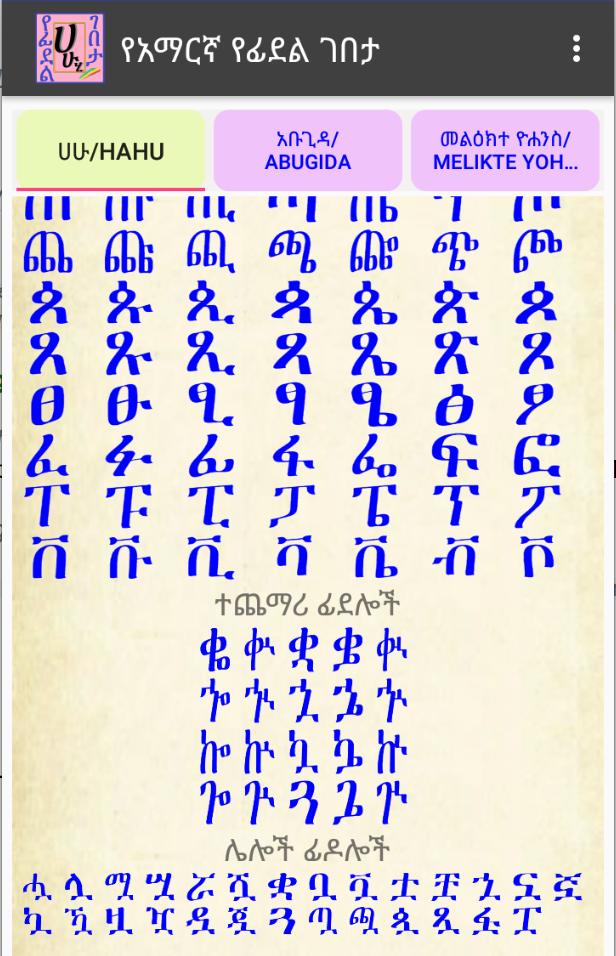 የፊደል ሀ ሁ ሂ ገበታ
የአማርኛ የፊደል ገበታ
ሀሁ/HAHU
አቡጊዳ/
ABUGIDA
መልዕክተ ዮሐንስ/
MELIKTE YOH...
ጨ ጩ ጪ ጫ ጬ ጭ ጮ
ጰ ጱ ጲ ጳ ጴ ጵ ጶ
ጸ ጹ ጺ ጻ ጼ ጽ ጾ
ፀ ፁ ፂ ፃ ፄ ፅ ፆ
ፈ ፉ ፊ ፋ ፌ ፍ ፎ
ፐ ፑ ፒ ፓ ፔ ፕ ፖ
ቨ ቩ ቪ ቫ ቬ ቭ ቮ
ተጨማሪ ፊደሎች
ቈ ቊ ቋ ቌ ቍ
ኈ ኊ ኋ ኌ ኍ
ኰ ኲ ኳ ኴ ኵ
ጐ ጒ ጓ ጔ ጕ
ሌሎች ፊዶሎች
ሗ ሏ ሟ ሧ ሯ ሿ ቋ ቧ ቯ ቷ ቿ ኋ ኗ ኟ
ኳ ዃ ዟ ዧ ዷ ጇ ጓ ጧ ጯ ጷ ጿ ፏ ፗ